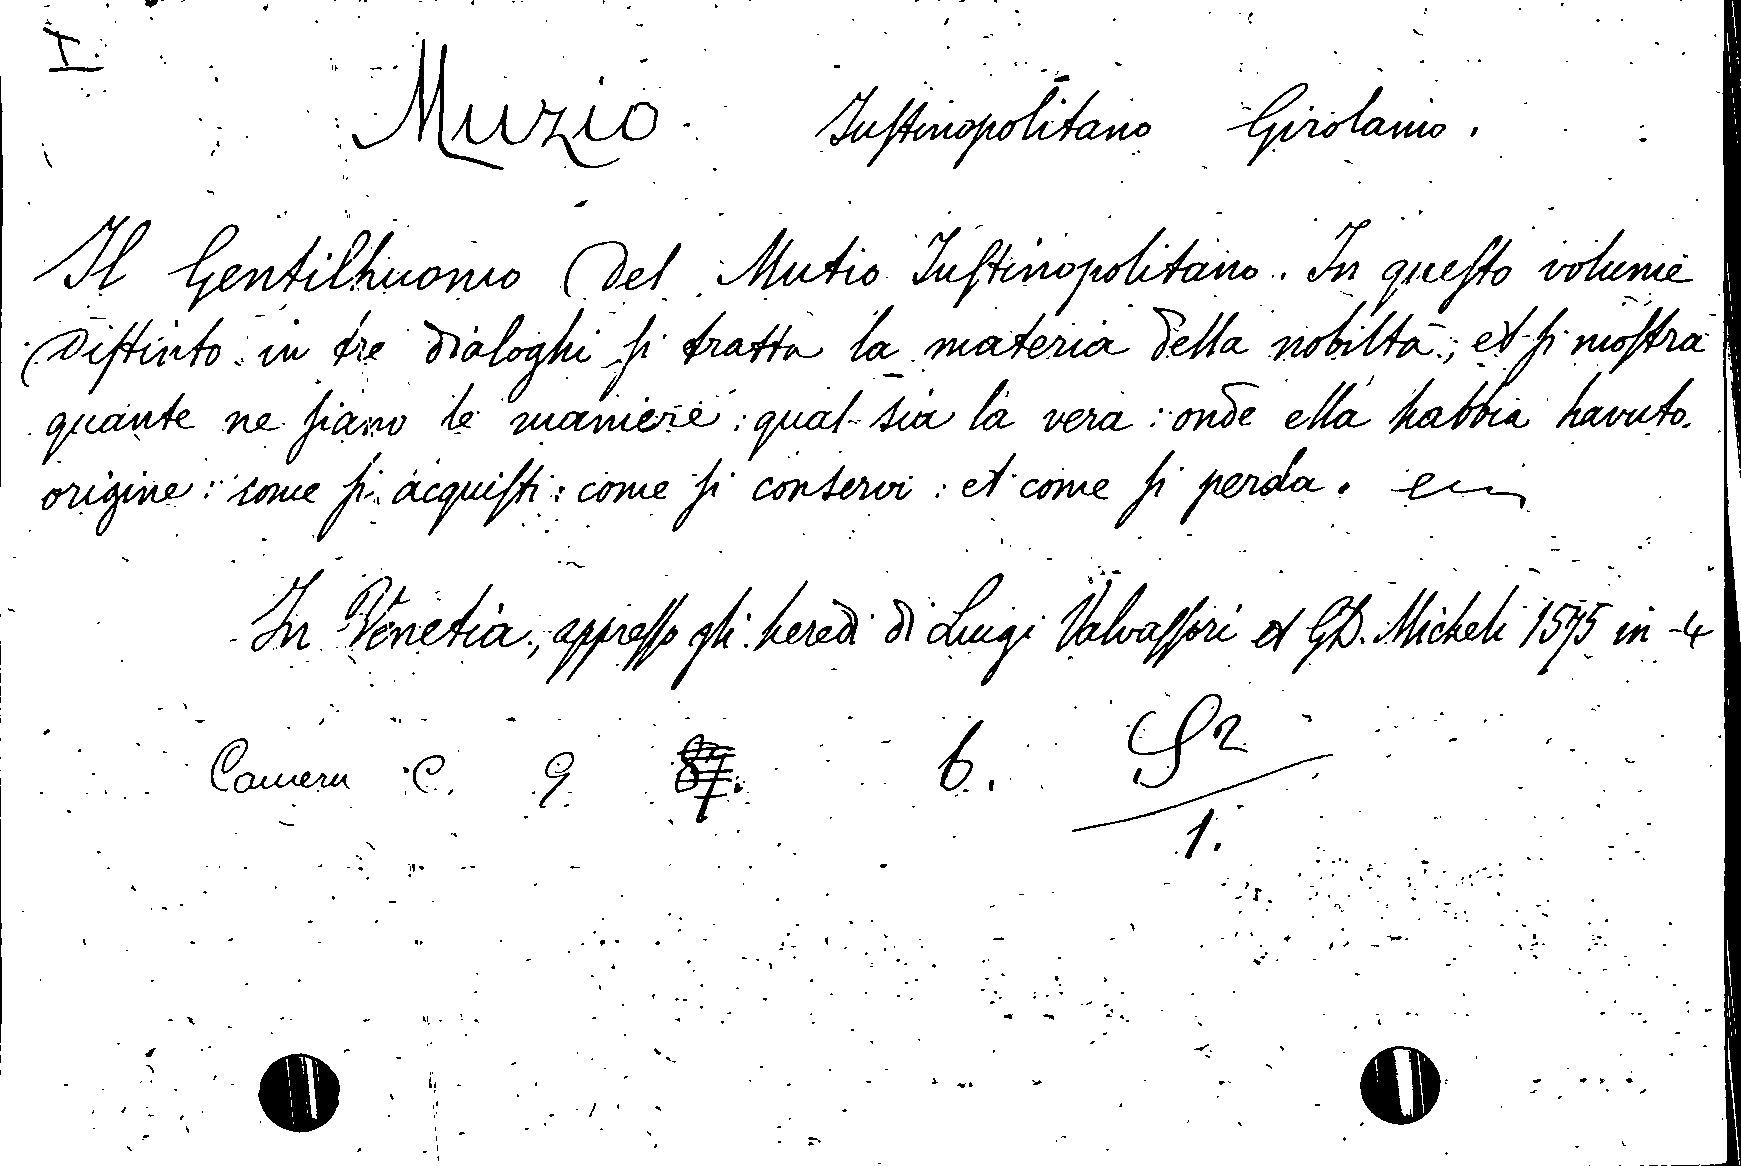 I.
Muzio Iustinopolitano Girolamo.
Il Gentilhuomo del Mutio Iustinopolitano. In questo volume
distinto in tre dialoghi si tratta la materia della nobiltà, et si mostra
quante ne siano le maniere: qual sia la vera: onde ella habbia havuto
origine: come si acquisti: come si conservi: et come si perda.
In Venetia, appresso gli heredi di Luigi Valvassori et G.D. Micheli 1575 in-4
Camera C. 9 6. S2
1.